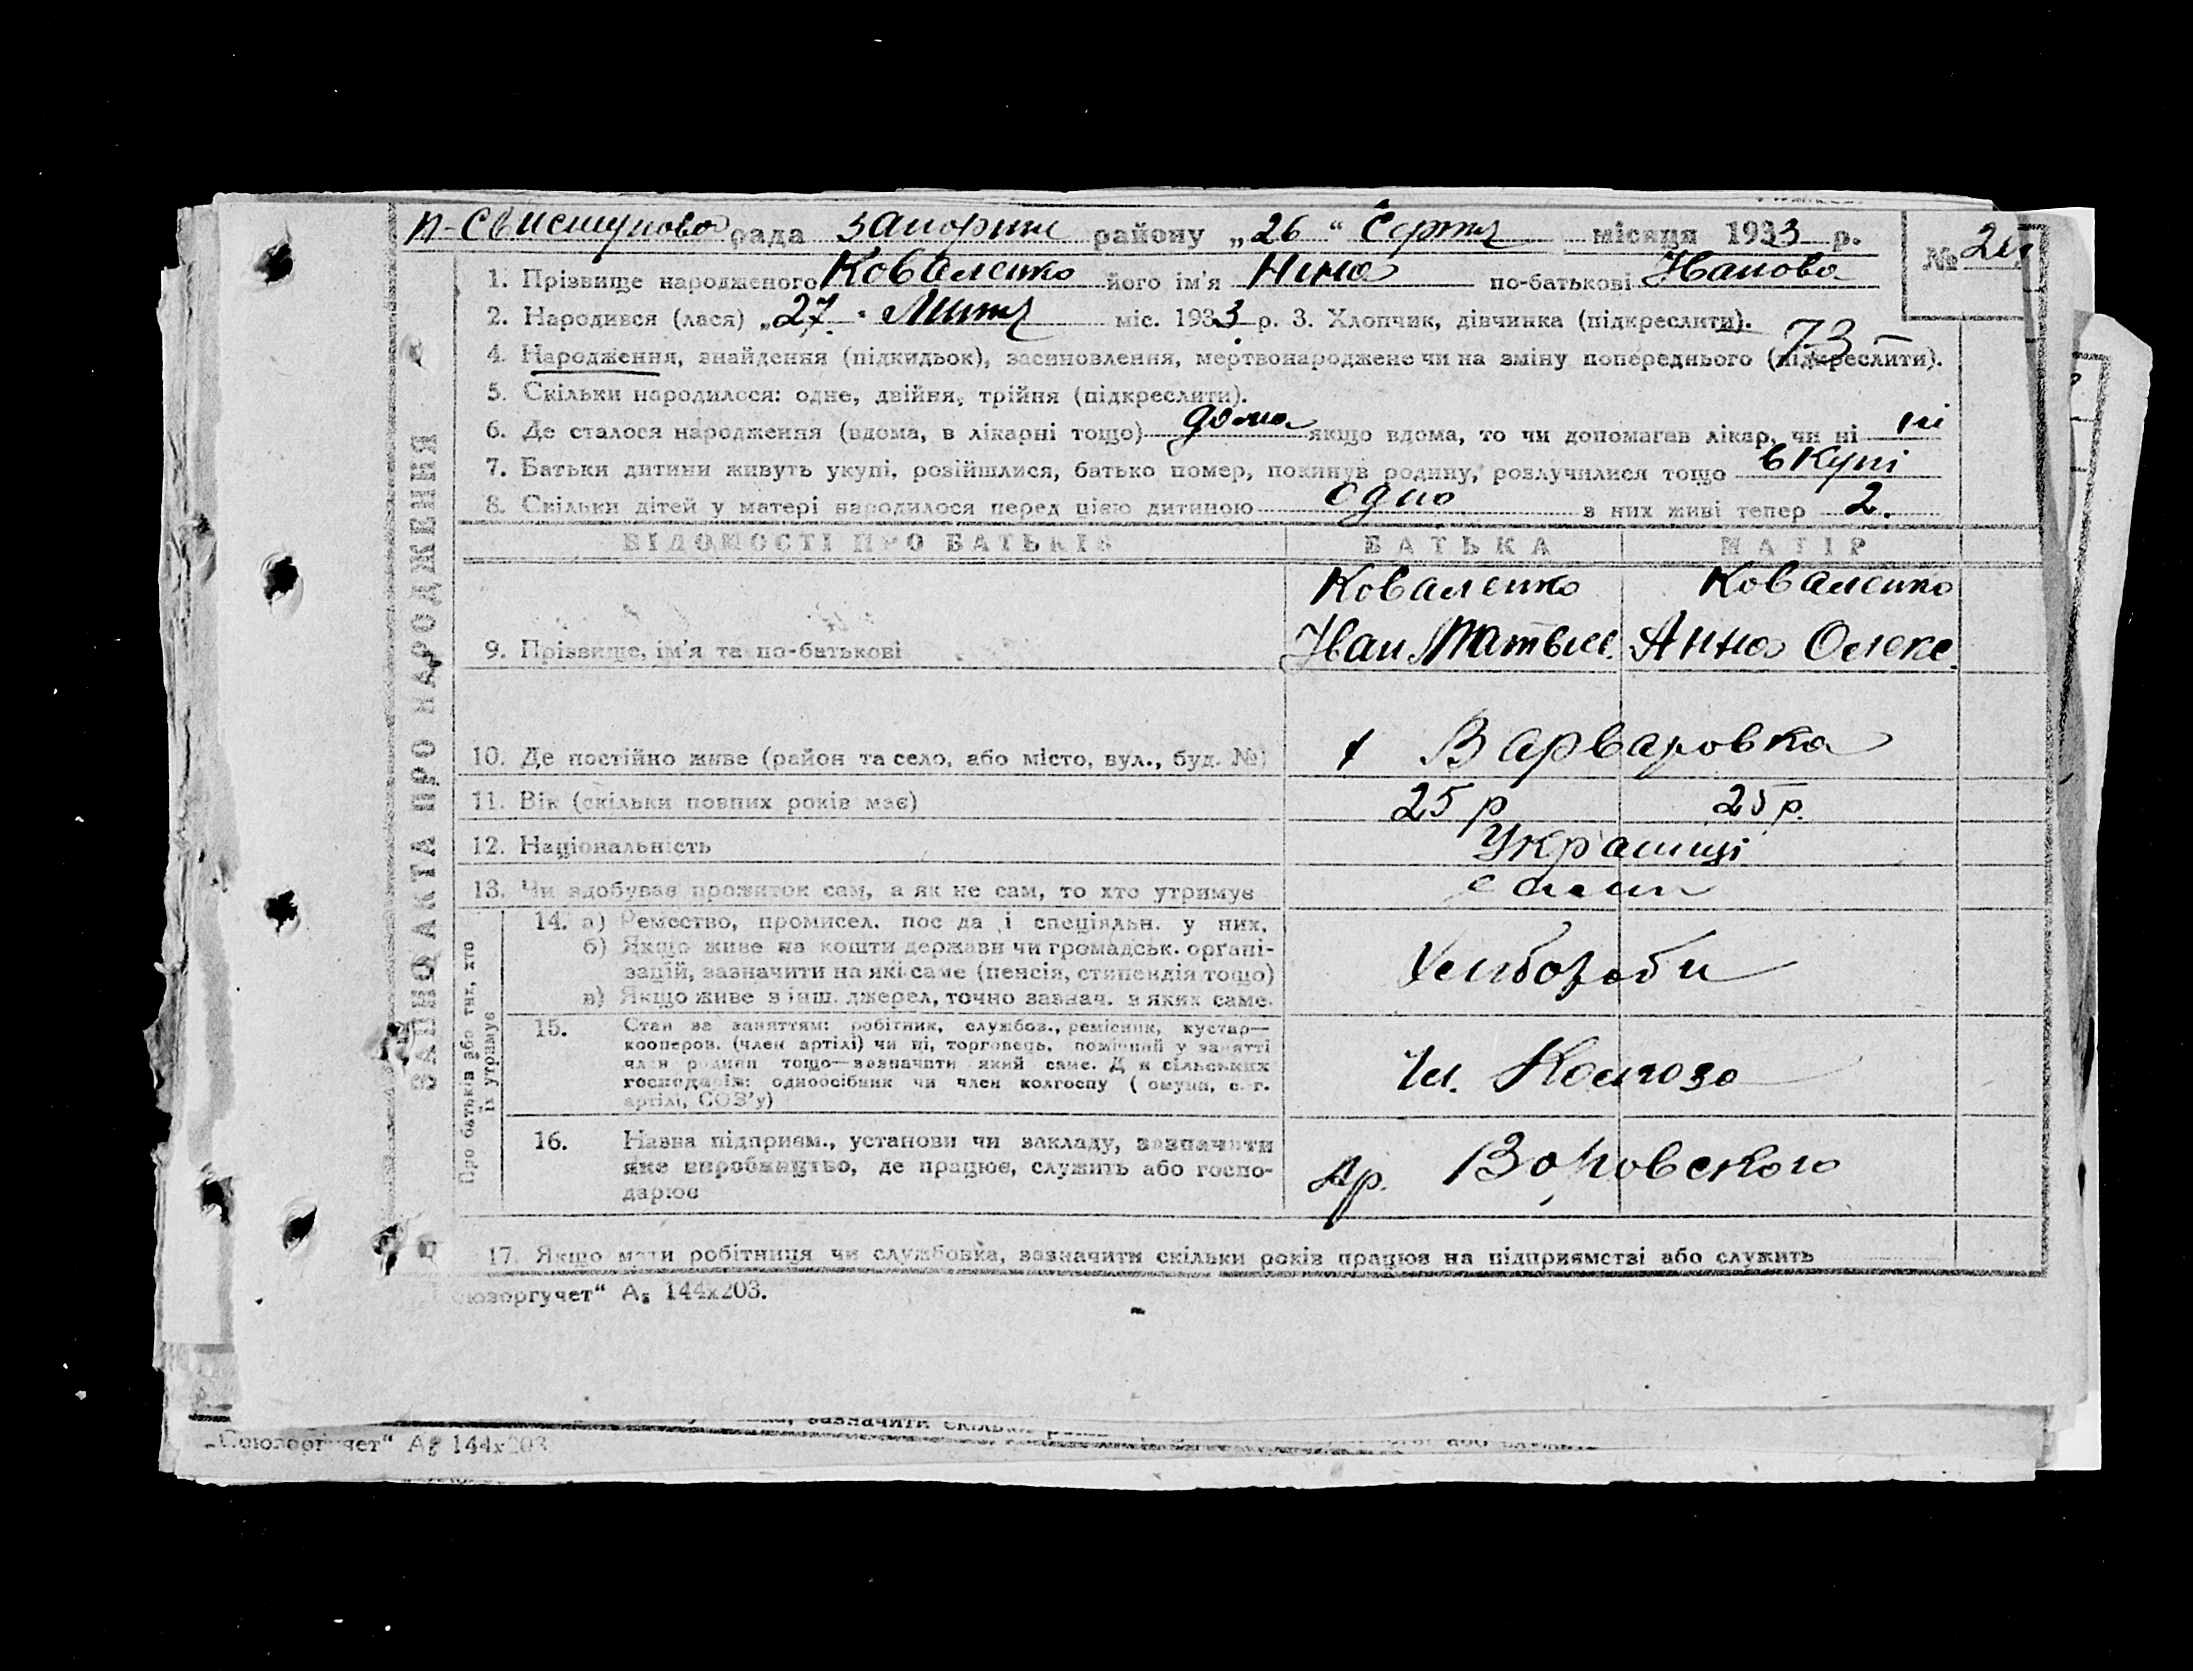 П-Свистуново рада Запоріжж району „26“ Серпня місяця 1933 р.
№
1. Прізвище народженого Коваленко його ім'я Нина по-батькові Іванова
2. Народився (лася) „27“ Лютня міс. 1933 р. 3. Хлопчик, дівчинка (підкреслити).
73
4. Народження, знайдення (підкидьок), засиновлення, мертвонароджене чи на зміну попереднього (підкреслити).
5. Скільки народилося: одне, двійня, трійня (підкреслити).
6. Де сталося народження (вдома, в лікарні тощо) дома якщо вдома, то чи допомагав лікар, чи ні ні
7. Батьки дитини живуть укупі, розійшлися, батько помер, покинув родину, розлучилися тощо вкупі
8. Скільки дітей у матері народилося перед цією дитиною одно з них живі тепер 2.
ЗАПИС АКТА ПРО НАРОДЖЕННЯ
ВІДОМОСТІ ПРО БАТЬКІВ БАТЬКА МАТІР
Коваленко Коваленко
9. Прізвище, ім'я та по-батькові Іван Матвие. Анна Олекс.
10. Де постійно живе (район та село, або місто, вул., буд. №) Варваровка
11. Вік (скільки повних років має) 25 р 25 р.
12. Національність Українці
13. Чи здобуває прожиток сам, а як не сам, то хто утримує сами
Про батьків або тих, хто їх утримує
14. а) Ремество, промисел, посада і спеціяльн. у них.
б) Якщо живе на кошти держави чи громадськ. організацій, зазначити на які саме (пенсія, стипендія тощо)
в) Якщо живе з інш. джерел, точно зазнач. з яких саме.
Хлібороби
15. Стан за заняттям: робітник, службов., ремісник, кустар—
кооперов. (член артілі) чи ні, торговець, помічний у занятті
член родини тощо—зазначити який саме. Для сільських
господарів: одноосібник чи член колгоспу (комуни, с.-г.
артілі, СОЗ'у)
Чл. Колгозо
16. Назва підприєм., установи чи закладу, зазначити
яке виробництво, де працює, служить або господарює
Ар. Воровского
17. Якщо мати робітниця чи службовка, зазначити скільки років працює на підприємстві або служить
оюзоргучет“ А₅ 144х203.
зазначити скільки
„Союзоргучет“ А₅ 144х203